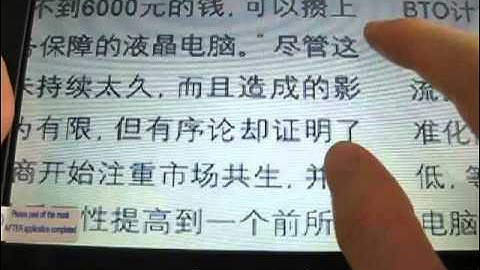 不到6000元的钱,可以攒上
务保障的液晶电脑。”尽管这
未持续太久,而且造成的影
的有限,但有序论却证明了
商开始注重市场共生,并
性提高到一个前所
BTO计
流
准化
低,等
电脑
Please peel of the mask
AFTER application completed